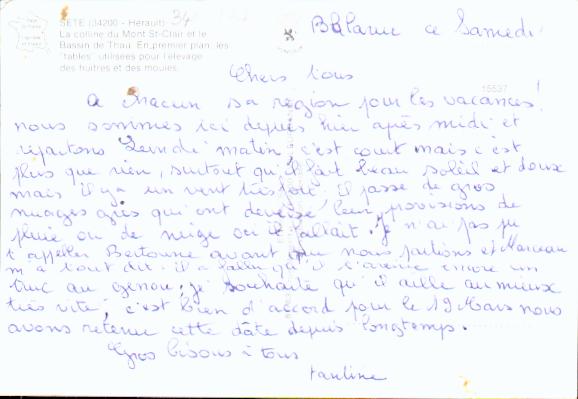 SETE (34200 - Hérault) 34
La colline du Mont St-Clair et le
Bassin de Thau. En premier plan, les
"tables" utilisées pour l'élevage
des huitres et des moules.
Balaruc ce Samedi
15537
Chers tous
A chacun sa région pour les vacances!
nous sommes ici depuis hier après midi et
repartons Lundi matin, c'est court mais c'est
plus que rien, surtout qu'il fait beau soleil et doux
mais il y a un vent très fort. il passe de gros
nuages gris qui ont déversé leur provisions de
pluie ou de neige où il fallait. je n'ai pas pu
t'appeller avant que nous partions et Marceau
m'a tout dit. il a fallu qu'il t'arrive encore un
truc au genou, je souhaite qu'il aille au mieux
très vite, c'est bien d'accord pour le 19 Mars nous
avons retenu cette date depuis longtemps.
Gros bisous à tous
Pauline